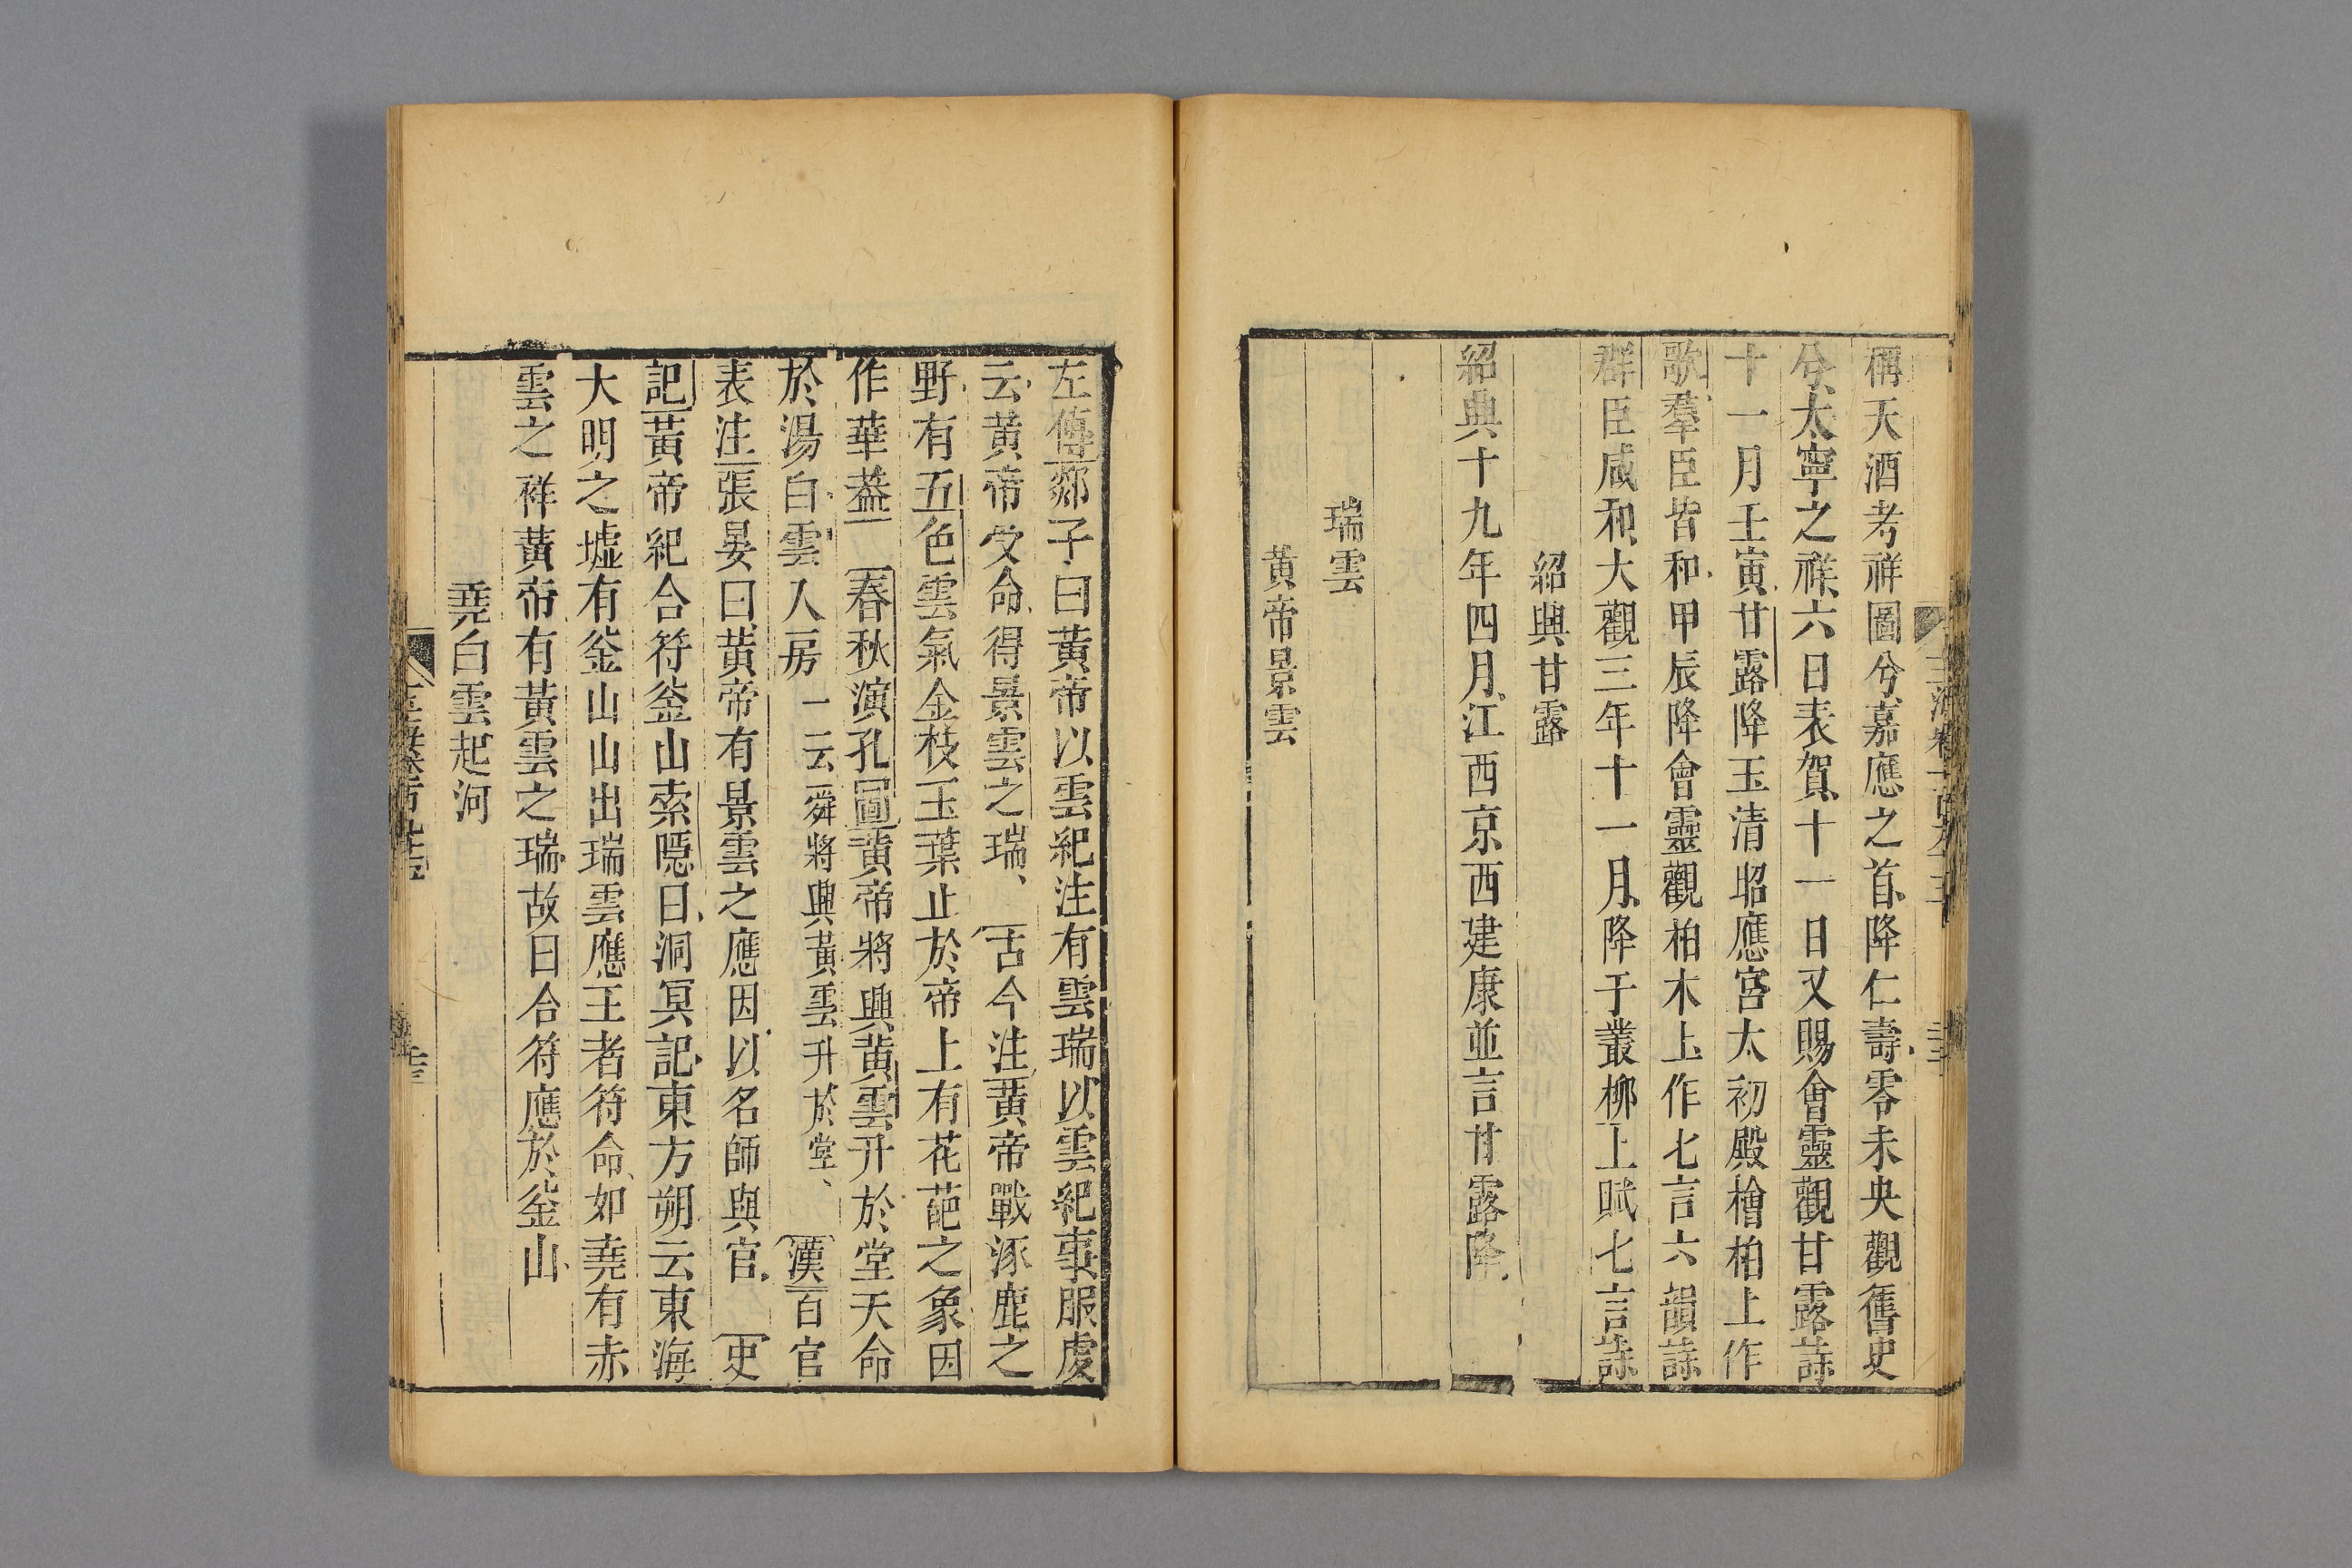 稱天酒考祥圖兮嘉應之首降仁壽零未央觀舊史
兮太寧之祥六日表賀十一日又賜會靈觀甘露詩
十一月壬寅甘露降玉清昭應宮太初殿檜柏上作
歌羣臣皆和甲辰降會靈觀柏木上作七言六韻詩
群臣咸和大觀三年十一月降于叢柳上賦七言詩
紹興甘露
紹興十九年四月江西京西建康並言甘露降
瑞雲
黃帝景雲
左傳郯子曰黃帝以雲紀注有雲瑞以雲紀事服虔
云黃帝受命得景雲之瑞、古今注黃帝戰涿鹿之
野有五色雲氣金枝玉葉止於帝上有花葩之象因
作華蓋 春秋演孔圖黃帝將興黃雲升於堂天命
於湯白雲入房 一云舜將興黃雲升於堂、 漢百官
表注張晏曰黃帝有景雲之應因以名師與官 史
記黃帝紀合符釜山索隱曰洞冥記東方朔云東海
大明之墟有釜山山出瑞雲應王者符命如堯有赤
雲之祥黃帝有黃雲之瑞故曰合符應於釜山
堯白雲起河